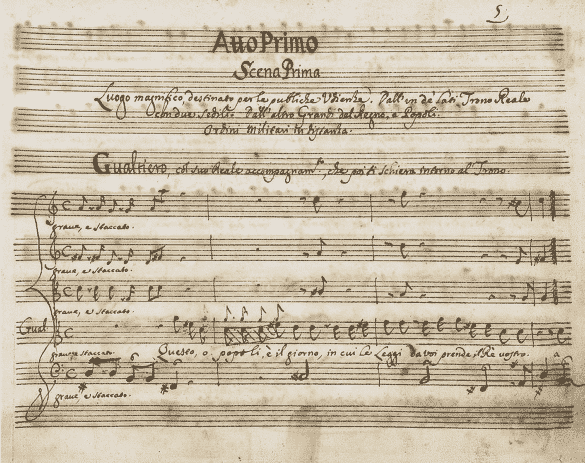 5
Atto Primo
Scena Prima
Luogo magnifico, destinato per le publiche Udienze. Dall'un de Lati Trono Reale
con due Sedili. Dall'altro Grandi del Regno, e Popoli.
Ordini Militari in distanza.
Gualtiero, col suo Reale accompagnam.to, che poi si schiera intorno al Trono.
grave, e staccato.
grave, e staccato.
grave, e staccato.
Gual:
grave, e staccato.
Questo, o popoli, è il giorno, in cui le Leggi Da voi prende il Rè vostro. a
grave e staccato.